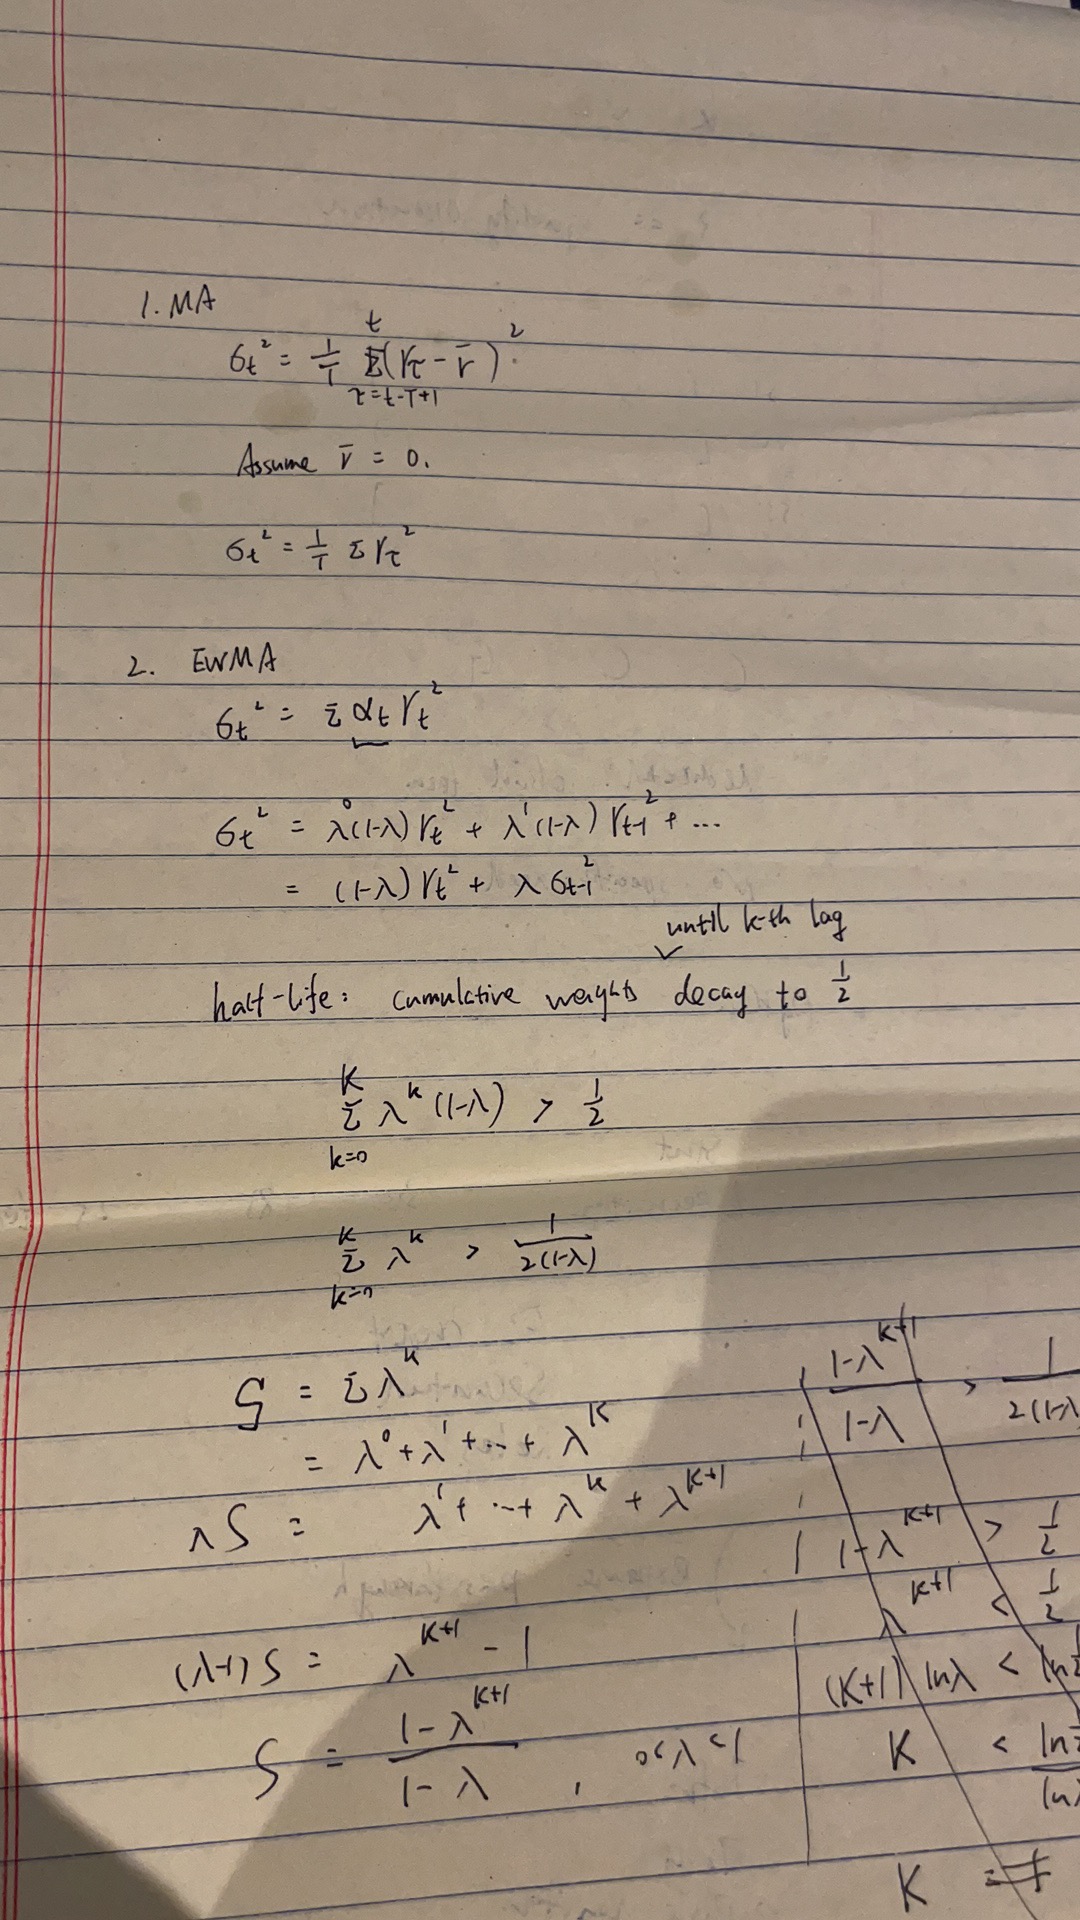 1. MA
σt² = 1/T Σ(rτ - r̄)²
t
τ=t-T+1
Assume r̄ = 0.
σt² = 1/T Σ rτ²
2. EWMA
σt² = Σ αt rt²
σt² = λ⁰(1-λ) rt² + λ¹(1-λ) rt-1² + ...
= (1-λ) rt² + λ σt-1²
until k-th lag
half-life: cumulative weights decay to 1/2
K
Σ λᵏ (1-λ) > 1/2
k=0
K
Σ λᵏ > 1/2(1-λ)
k=0
S = Σ λᵏ
= λ⁰ + λ¹ + ... + λᴷ
λS = λ¹ + ... + λᴷ + λᴷ⁺¹
(λ-1) S = λᴷ⁺¹ - 1
S = (1-λᴷ⁺¹)/(1-λ) , 0<λ<1
(1-λᴷ⁺¹)/(1-λ) > 1/2(1-λ
1-λᴷ⁺¹ > 1/2
λᴷ⁺¹ < 1/2
(K+1) lnλ < ln 1/2
K < ln 1/2 / lnλ
K =